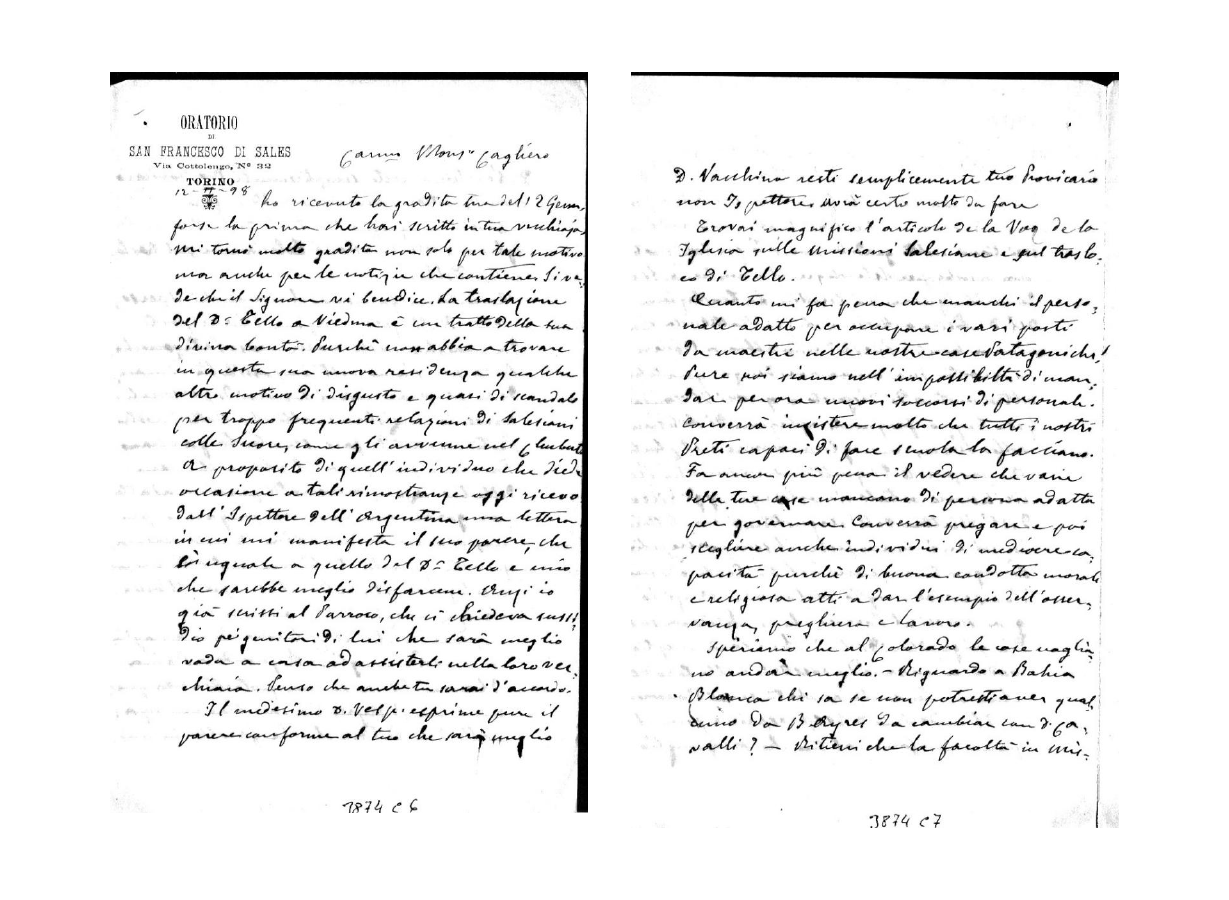 ORATORIO
DI
SAN FRANCESCO DI SALES
Via Cottolengo, Nº 32
TORINO
Carmo Monsr Cagliero
12 - - 98
ho ricevuto la gradita tua del 12 Genn.
forse la prima che hai scritto in tua vecchiaja,
mi tornò molto gradita non solo per tale motivo
ma anche per le notizie che contiene. Si ve-
de che il Signore vi benedice. La traslazione
del Dr Tello a Viedma è un tratto della sua
divina bontà. Purchè non abbia a trovare
in questa sua nuova residenza qualche
altro motivo di disgusto e quasi di scandalo
per troppo frequenti relazioni di Salesiani
colle Suore, come gli avvenne nel Chubut.
A proposito di quell'individuo che diede
occasione a tali rimostranze oggi ricevo
dall'Ispettore dell'Argentina una lettera
in cui mi manifesta il suo parere, che
è uguale a quello del Dr Tello e mio
che sarebbe meglio disfarcene. Anzi io
già scrissi al Parroco, che ci chiedeva sussi-
dio pe' genitori di lui che sarà meglio
vada a casa ad assisterli nella loro vec-
chiaia. Penso che anche tu sarai d'accordo.
Il medesimo D. Vesp. esprime pure il
parere conforme al tuo che sarà meglio
3874 C 6
D. Vacchina resti semplicemente tuo Provicario
non Ispettore, avrà certo molto da fare
Trovai magnifico l'articolo de la Voz de la
Iglesia sulle missioni Salesiane e sul traslo-
co di Tello.
Quanto mi fa pena che manchi il perso-
nale adatto per occupare i vari posti
da maestri nelle nostre case Patagoniche!
Pure noi siamo nell'impossibilità di man-
dar per ora nuovi soccorsi di personale.
Converrà insistere molto che tutti i nostri
Preti capaci di fare scuola la facciano.
Fa ancor più pena il vedere che varie
delle tue case mancano di persona adatta
per governare. Converrà pregare e poi
scegliere anche individui di mediocre ca-
pacità purchè di buona condotta morale
e religiosa atti a dar l'esempio dell'osser-
vanza, preghiera e lavoro.
Speriamo che al Colorado le cose voglia-
no andar meglio. - Riguardo a Bahia
Blanca chi sa se non potresti aver qual-
cuno da B Ayres da cambiar con D. Ca-
valli? - Ritieni che la facoltà in mis-
3874 C7